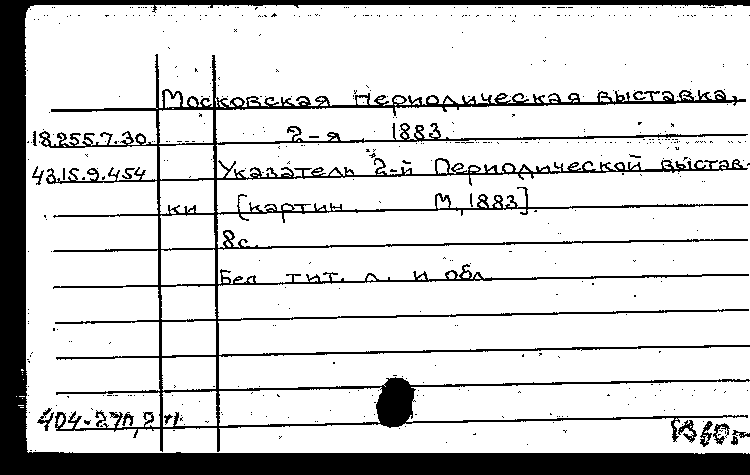 Московская периодическая выставка,
18.255.7.30. 2-я, 1883.
43.15.9.454 Указатель 2-й Периодической выстав-
ки [картин. М., 1883].
8с.
Без тит. л. и обл.